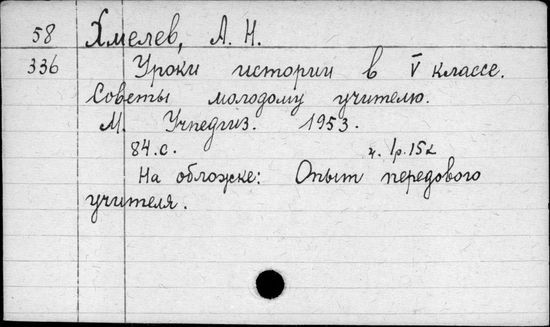 58 Хмелев, А. Н.
336 Уроки истории в V классе.
Советы молодому учителю.
М. Учпедгиз. 1953.
84 с. ц. 1р.15к
На обложке: Опыт передового
учителя.